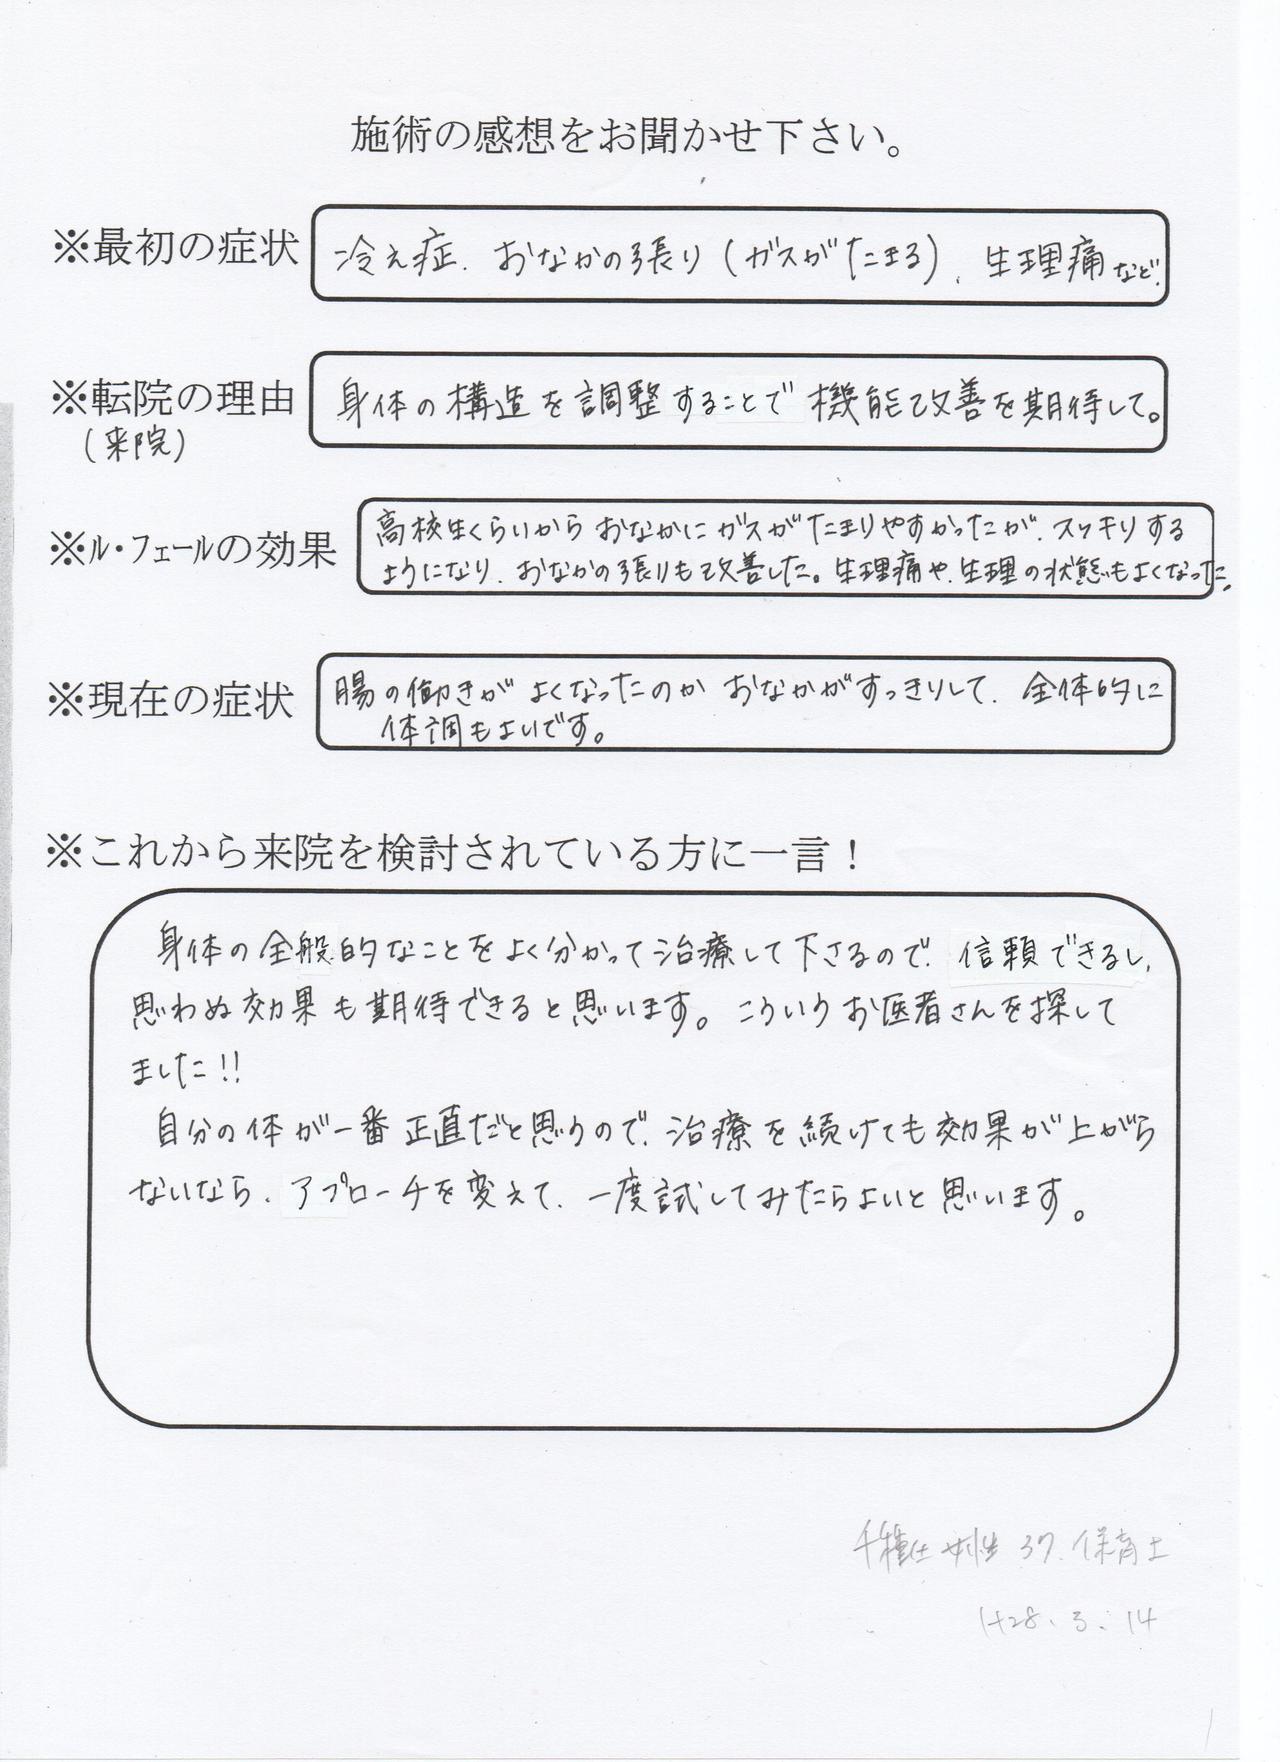 施術の感想をお聞かせ下さい。
※最初の症状
冷え症、おなかの張り(ガスがたまる)、生理痛など.
※転院の理由
(来院)
身体の構造を調整することで機能改善を期待して。
※ル・フェールの効果
高校生くらいからおなかにガスがたまりやすかったが、スッキリする
ようになり、おなかの張りも改善した。生理痛や、生理の状態もよくなった。
※現在の症状
腸の働きがよくなったのかおなかがすっきりして、全体的に
体調もよいです。
※これから来院を検討されている方に一言!
身体の全般的なことをよく分かって治療して下さるので、信頼できるし、
思わぬ効果も期待できると思います。こういうお医者さんを探して
ました!!
自分の体が一番正直だと思うので、治療を続けても効果が上がら
ないなら、アプローチを変えて、一度試してみたらよいと思います。
千種 女性 37. 保育士
H28. 3. 14